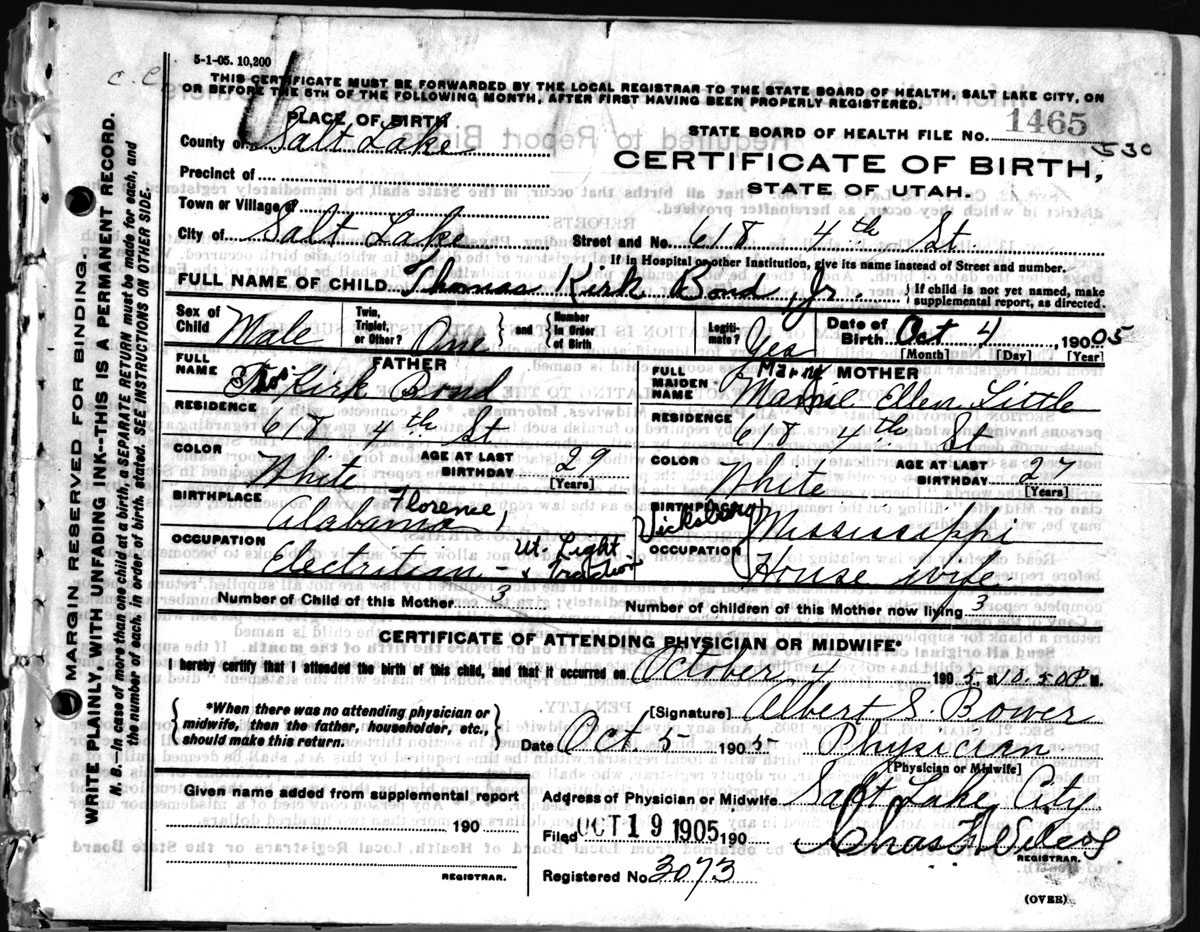 5-1-05. 10,200
C. C.
THIS CERTIFICATE MUST BE FORWARDED BY THE LOCAL REGISTRAR TO THE STATE BOARD OF HEALTH, SALT LAKE CITY, ON
OR BEFORE THE 5TH OF THE FOLLOWING MONTH, AFTER FIRST HAVING BEEN PROPERLY REGISTERED.
PLACE OF BIRTH
STATE BOARD OF HEALTH FILE NO. 1465
530
County of Salt Lake
CERTIFICATE OF BIRTH,
STATE OF UTAH.
Precinct of
Town or Village of
City of Salt Lake Street and No. 618 4th St.
If in Hospital or other Institution, give its name instead of Street and number.
FULL NAME OF CHILD Thomas Kirk Bond, Jr. If child is not yet named, make supplemental report, as directed.
Sex of Child Male Twin, Triplet, or Other? One and Number in Order of Birth Legitimate? Yes Date of Birth Oct 4 1905
[Month] [Day] [Year]
FATHER
FULL NAME Thos Kirk Bond
RESIDENCE
618 4th St
COLOR White AGE AT LAST BIRTHDAY 29
[Years]
BIRTHPLACE Florence,
Alabama
OCCUPATION
Electritian - Ut. Light & Traction
MOTHER
FULL MAIDEN NAME Mamie Ellen Little
RESIDENCE
618 4th St
COLOR White AGE AT LAST BIRTHDAY 27
[Years]
BIRTHPLACE
Vicksberg Mississippi
OCCUPATION
House wife
Number of Child of this Mother 3 Number of children of this Mother now living 3
CERTIFICATE OF ATTENDING PHYSICIAN OR MIDWIFE*
I hereby certify that I attended the birth of this child, and that it occurred on October 4 1905 at 10.50 P. M.
*When there was no attending physician or midwife, then the father, householder, etc., should make this return.
[Signature] Albert S. Bower
Date Oct. 5 1905 Physician
[Physician or Midwife]
Given name added from supplemental report
190
REGISTRAR.
Address of Physician or Midwife Salt Lake City
Filed OCT 19 1905 190
REGISTRAR.
Registered No. 3073
(OVER)
MARGIN RESERVED FOR BINDING.
WRITE PLAINLY, WITH UNFADING INK--THIS IS A PERMANENT RECORD.
N. B.--In case of more than one child at a birth, a SEPARATE RETURN must be made for each, and
the number of each, in order of birth, stated. SEE INSTRUCTIONS ON OTHER SIDE.